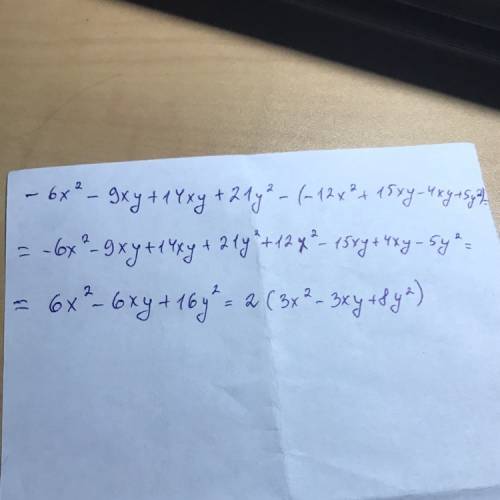 - 6x² - 9xy + 14xy + 21y² - (-12x² + 15xy - 4xy + 5y²) =
= -6x² - 9xy + 14xy + 21y² + 12x² - 15xy + 4xy - 5y² =
= 6x² - 6xy + 16y² = 2 (3x² - 3xy + 8y²)